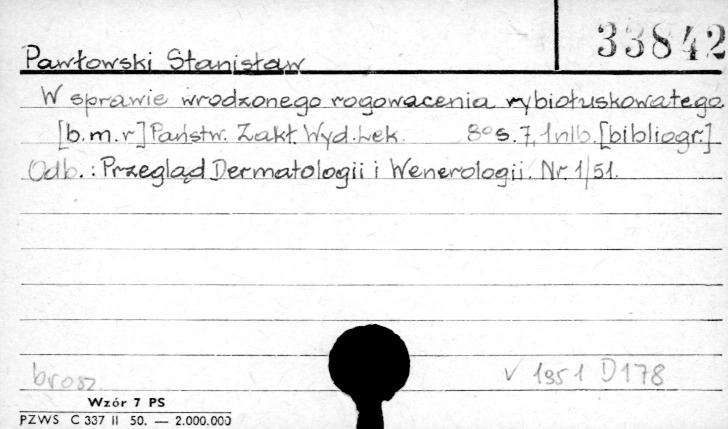 33842
Pawłowski Stanisław
W sprawie wrodzonego rogowacenia rybiołuskowatego
[b.m.r] Państw. Zakł. Wyd. Lek. 8° s. 7, 1 nlb. [bibliogr.]
Odb.: Przegląd Dermatologii i Wenerologii. Nr. 1/51.
brosz. v 1951 D178
Wzór 7 PS
PZWS C 337 II 50. — 2.000.000